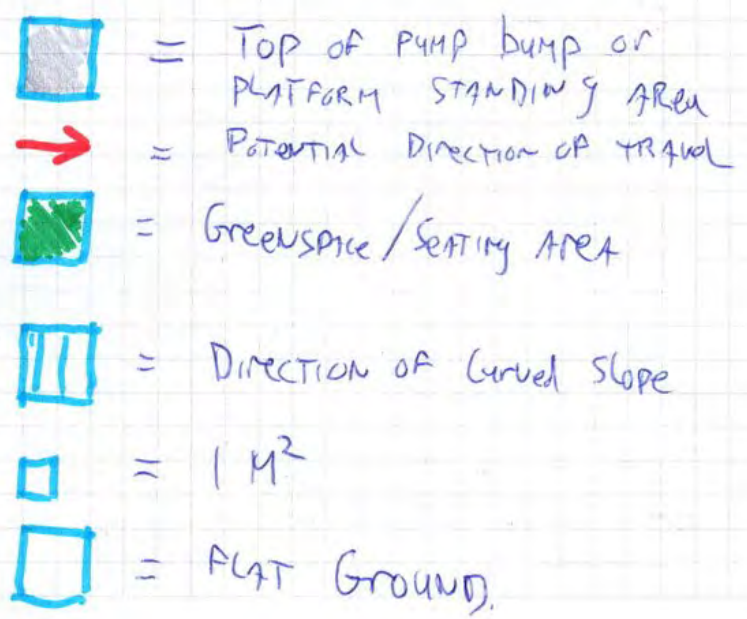 = Top of PUMP bump or
PLATFORM STANDING AREA
= POTENTIAL DIRECTION OF TRAVEL
= GreeNSPACE/SEATING AREA
= DIRECTION OF Curved Slope
= 1 M²
= FLAT GROUND.